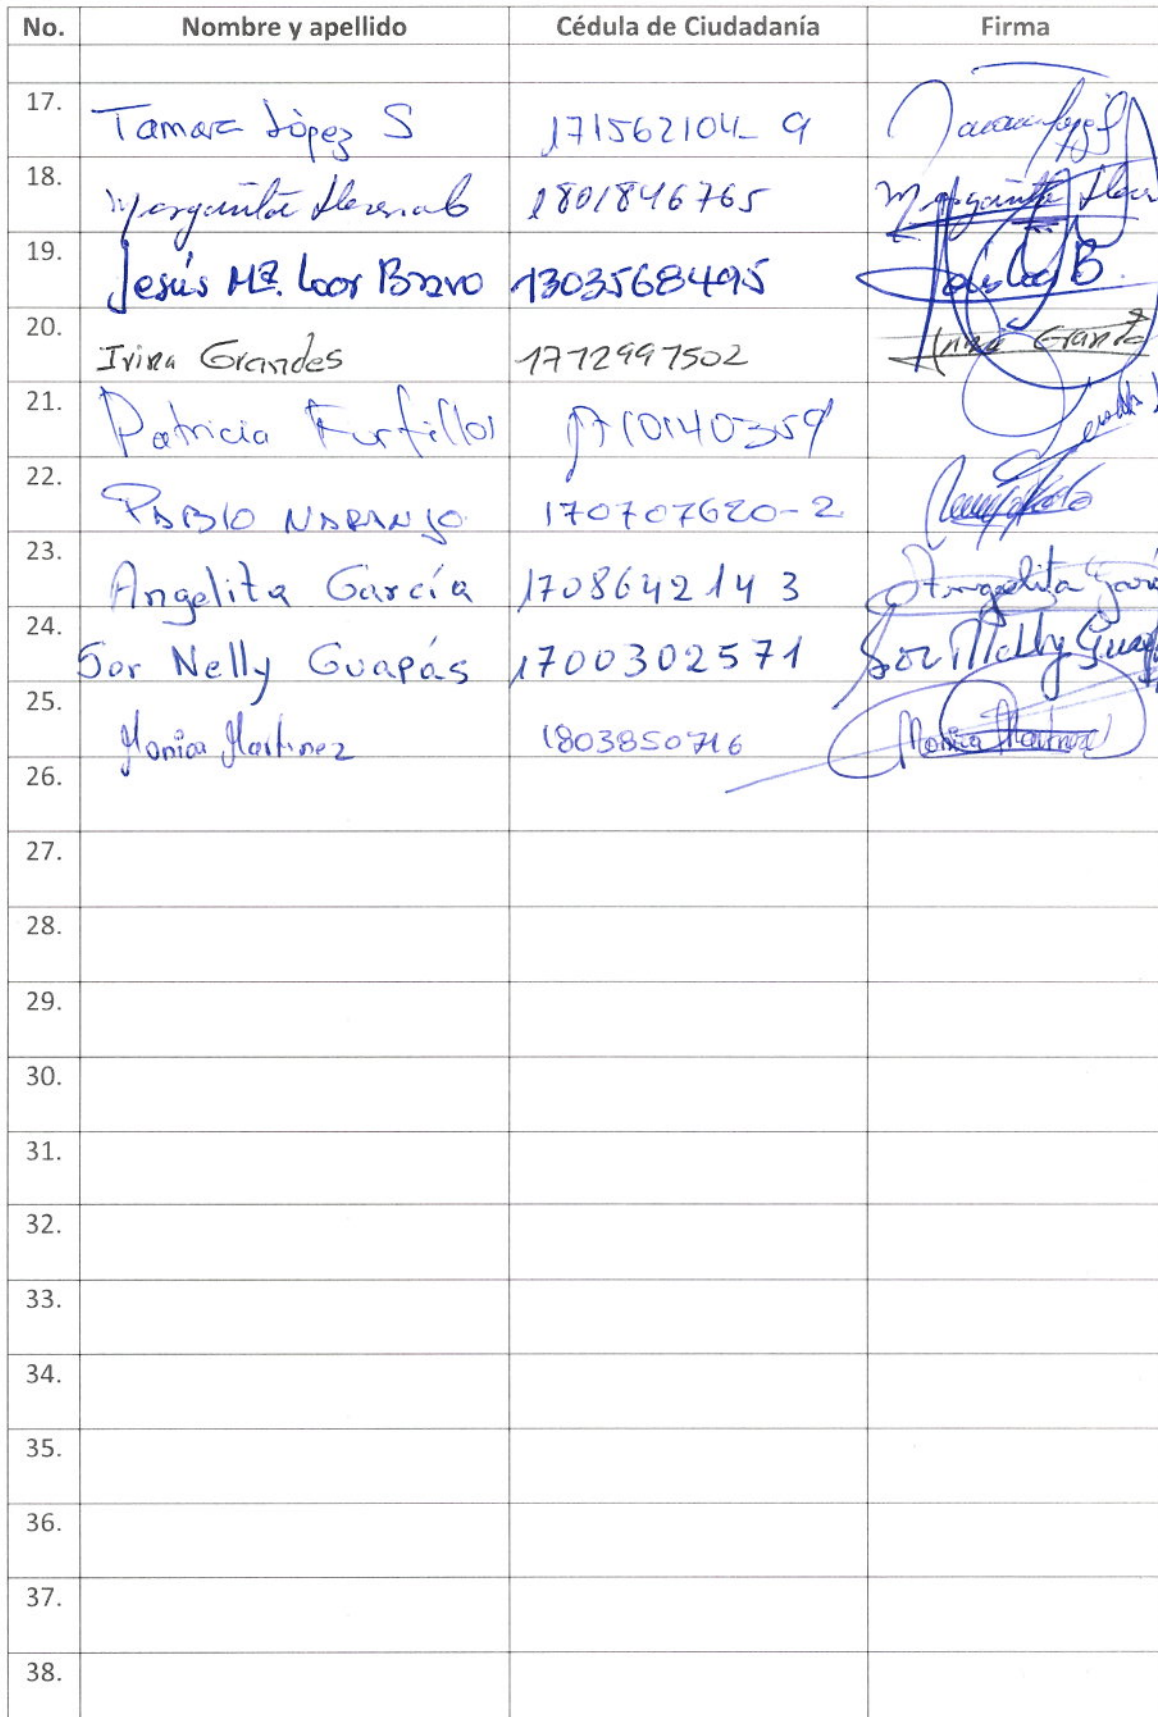 No. Nombre y apellido Cédula de Ciudadanía Firma
17. Tamara López S 171562104-9
18. Margarita 1801846765 Margarita
19. Jesús Mª. Loor Bravo 1303568495 B.
20. Irina Grandes 1712997502 Irina Grandes
21. Patricia
22. PABLO NARANJO 170707620-2
23. Angelita García 1708642143 Angelita
24. Sor Nelly Guapás 1700302571 Sor Nelly
25. Monica Martinez 1803850716 Monica Martinez
26.
27.
28.
29.
30.
31.
32.
33.
34.
35.
36.
37.
38.